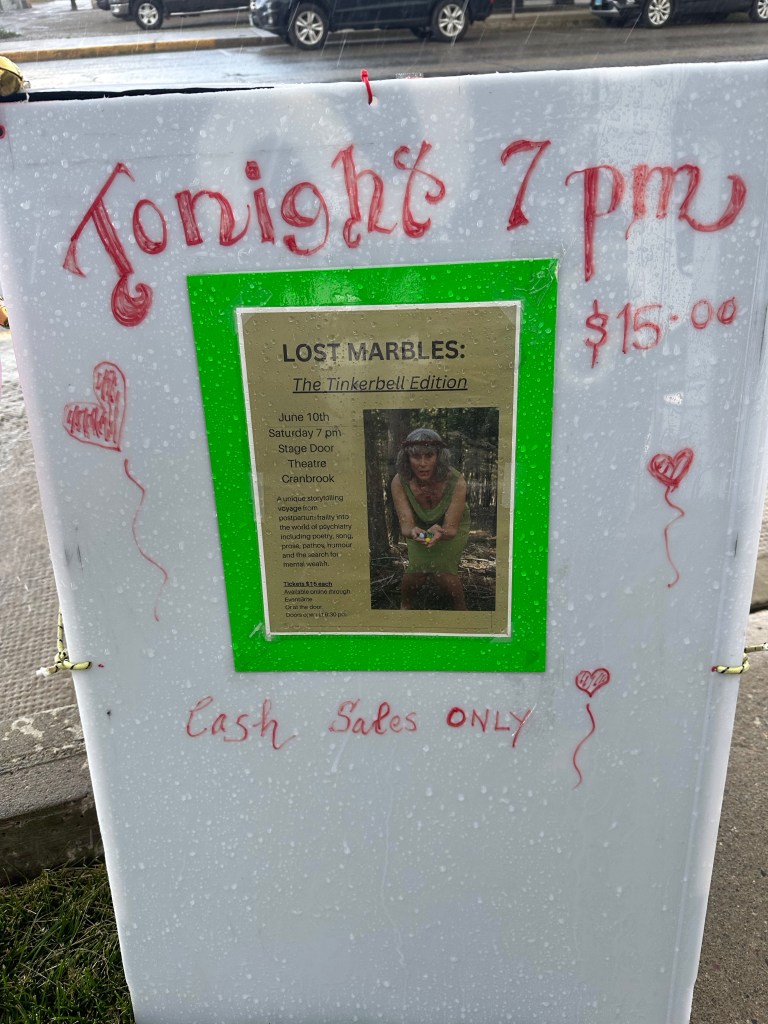 Tonight 7 pm
$15.00
LOST MARBLES:
The Tinkerbell Edition
June 10th
Saturday 7 pm
Stage Door
Theatre
Cranbrook
A unique storytelling
voyage from
postpartum frailty into
the world of psychiatry
including poetry, song,
prose, pathos, humour
and the search for
mental wealth.
Tickets $15 each
Available online through
Eventbrite
Or at the door.
Doors open at 6:30 pm
Cash Sales ONLY